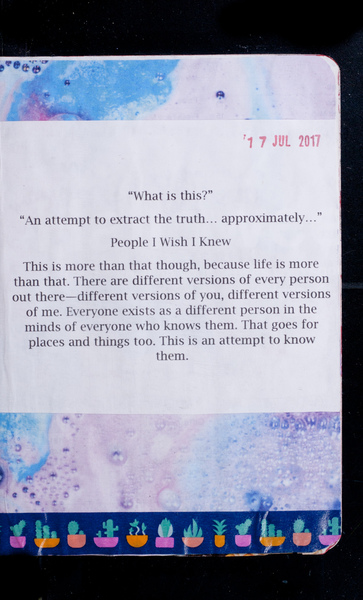 '1 7 JUL 2017
“What is this?”
“An attempt to extract the truth... approximately...”
People I Wish I Knew
This is more than that though, because life is more
than that. There are different versions of every person
out there—different versions of you, different versions
of me. Everyone exists as a different person in the
minds of everyone who knows them. That goes for
places and things too. This is an attempt to know
them.